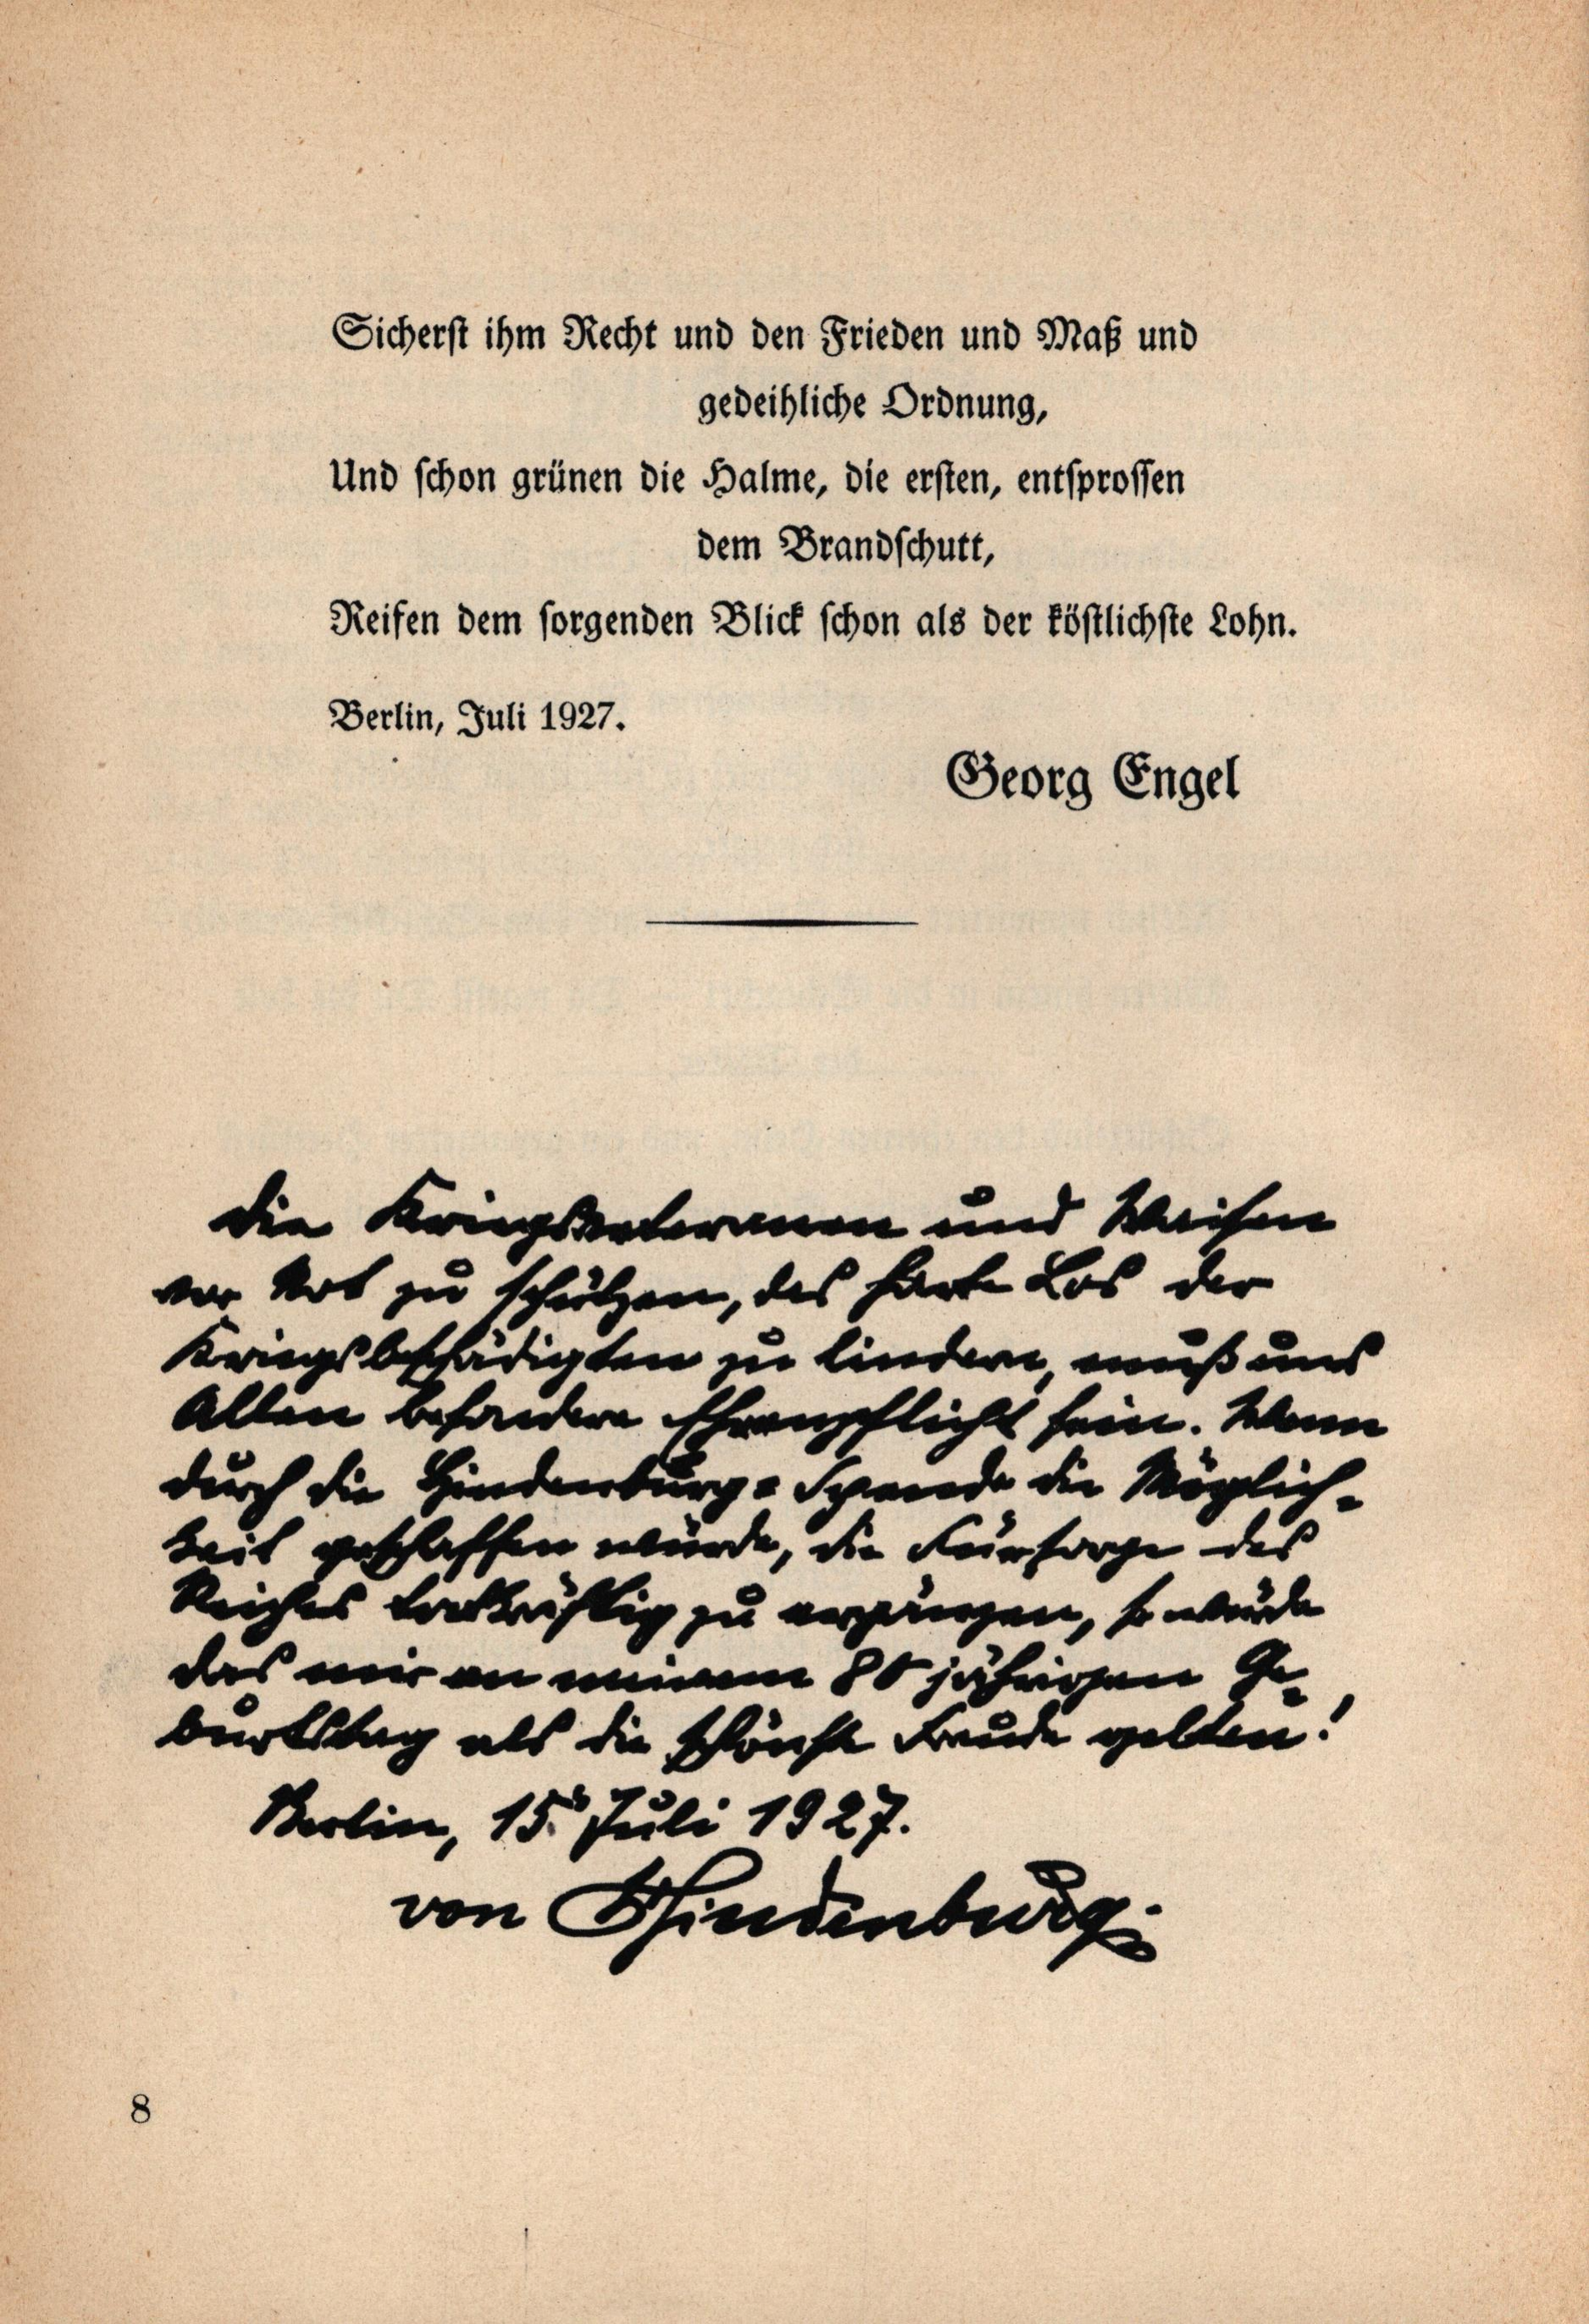 Sicherst ihm Recht und den Frieden und Maß und
gedeihliche Ordnung,
Und schon grünen die Halme, die ersten, entsprossen
dem Brandschutt,
Reifen dem sorgenden Blick schon als der köstlichste Lohn.
Berlin, Juli 1927.
Georg Engel
Die Kriegsveteranen und Waisen
vor Not zu schützen, das harte Los der
Kriegsbeschädigten zu lindern, muß uns
Allen besondere Ehrenpflicht sein. Wenn
durch die Hindenburg-Spende die Möglich-
keit geschaffen würde, die Fürsorge des
Reiches tatkräftig zu ergänzen, so würde
das mir an meinem 80 jährigen Ge-
burtstag als die schönste Freude gelten!
Berlin, 15. Juli 1927.
von Hindenburg.
8